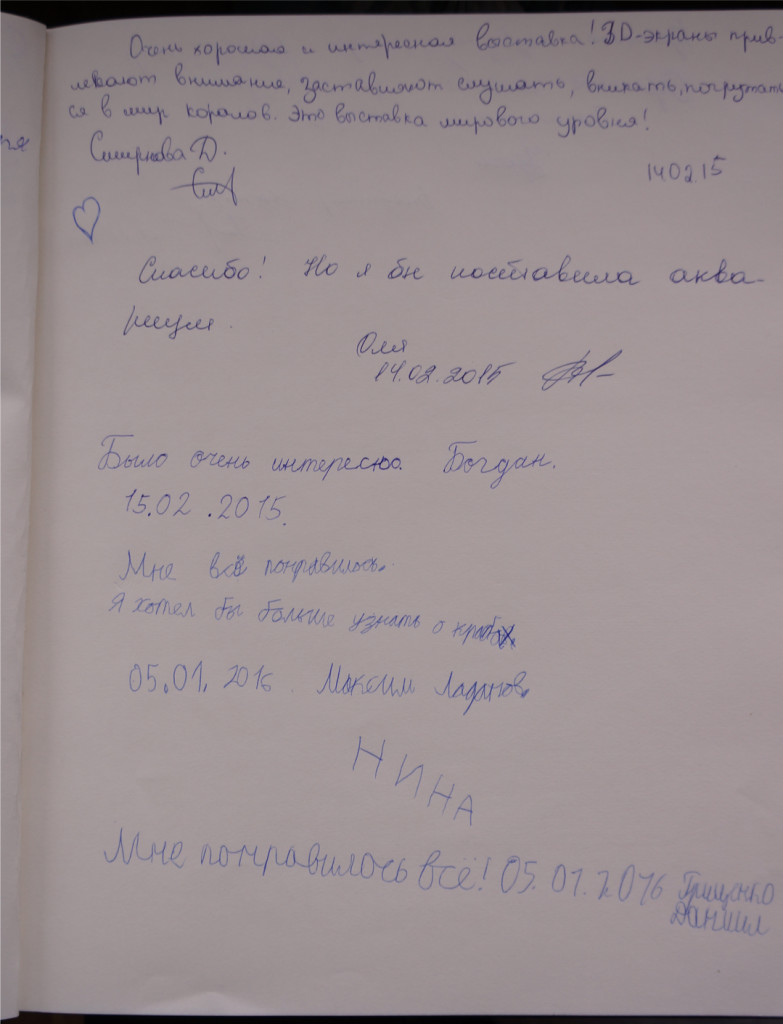 Очень хорошая и интересная выставка! 3D-экраны прив-
лекают внимание, заставляют слушать, вникать, погружать
ся в мир коралов. Это выставка мирового уровня!
Смирнова Д.
140215
Спасибо! Но я бы поставила аква-
риум.
Оля
14.02.2015
Было очень интересно. Богдан.
15.02.2015.
Мне всё понравилось.
Я хотел бы больше узнать о крабах
05.01.2016. Максим
НИНА
Мне понравилось всё! 05.01.2016 Грищенко
Даниил